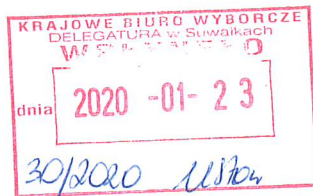 KRAJOWE BIURO WYBORCZE
DELEGATURA w Suwałkach
dnia 2020 -01- 23
30/2020